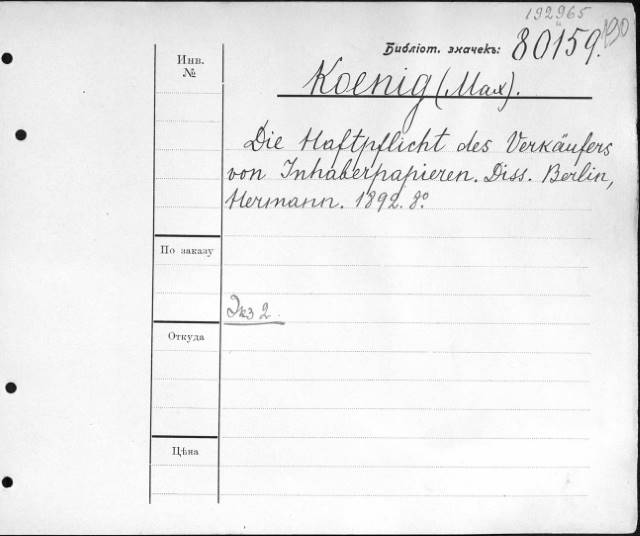 192965
Библіот. значекъ: 80159. 190
Инв.
№
Koenig (Max).
Die Haftpflicht des Verkäufers
von Inhaberpapieren. Diss. Berlin,
Hermann. 1892. 8º
По заказу
Экз 2.
Откуда
Цѣна